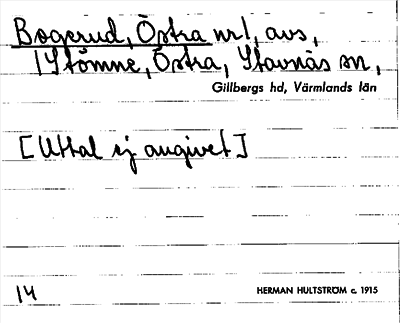 Bogerud, Östra nr 1, avs,
i Stömne, Östra, Stavnäs sn,
Gillbergs hd, Värmlands län
[Uttal ej angivet]
14
HERMAN HULTSTRÖM c. 1915